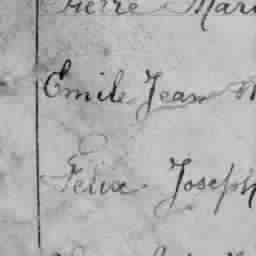 Pierre Mari
Emile Jean M
Felix Joseph